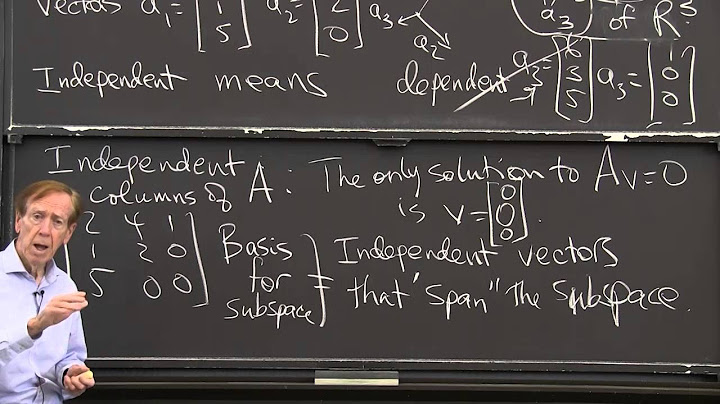 vectors a₁ = [1 5] a₂ = [2 0] a₃ a₂ a₃ of R³
Independent means dependent a₃ = [6 3 5] a₃ = [1 0 0]
Independent columns of A : The only solution to Av=0
is v = [0 0 0].
2 4 1
1 2 0
5 0 0
Basis for subspace = Independent vectors
that "span" the subspace.